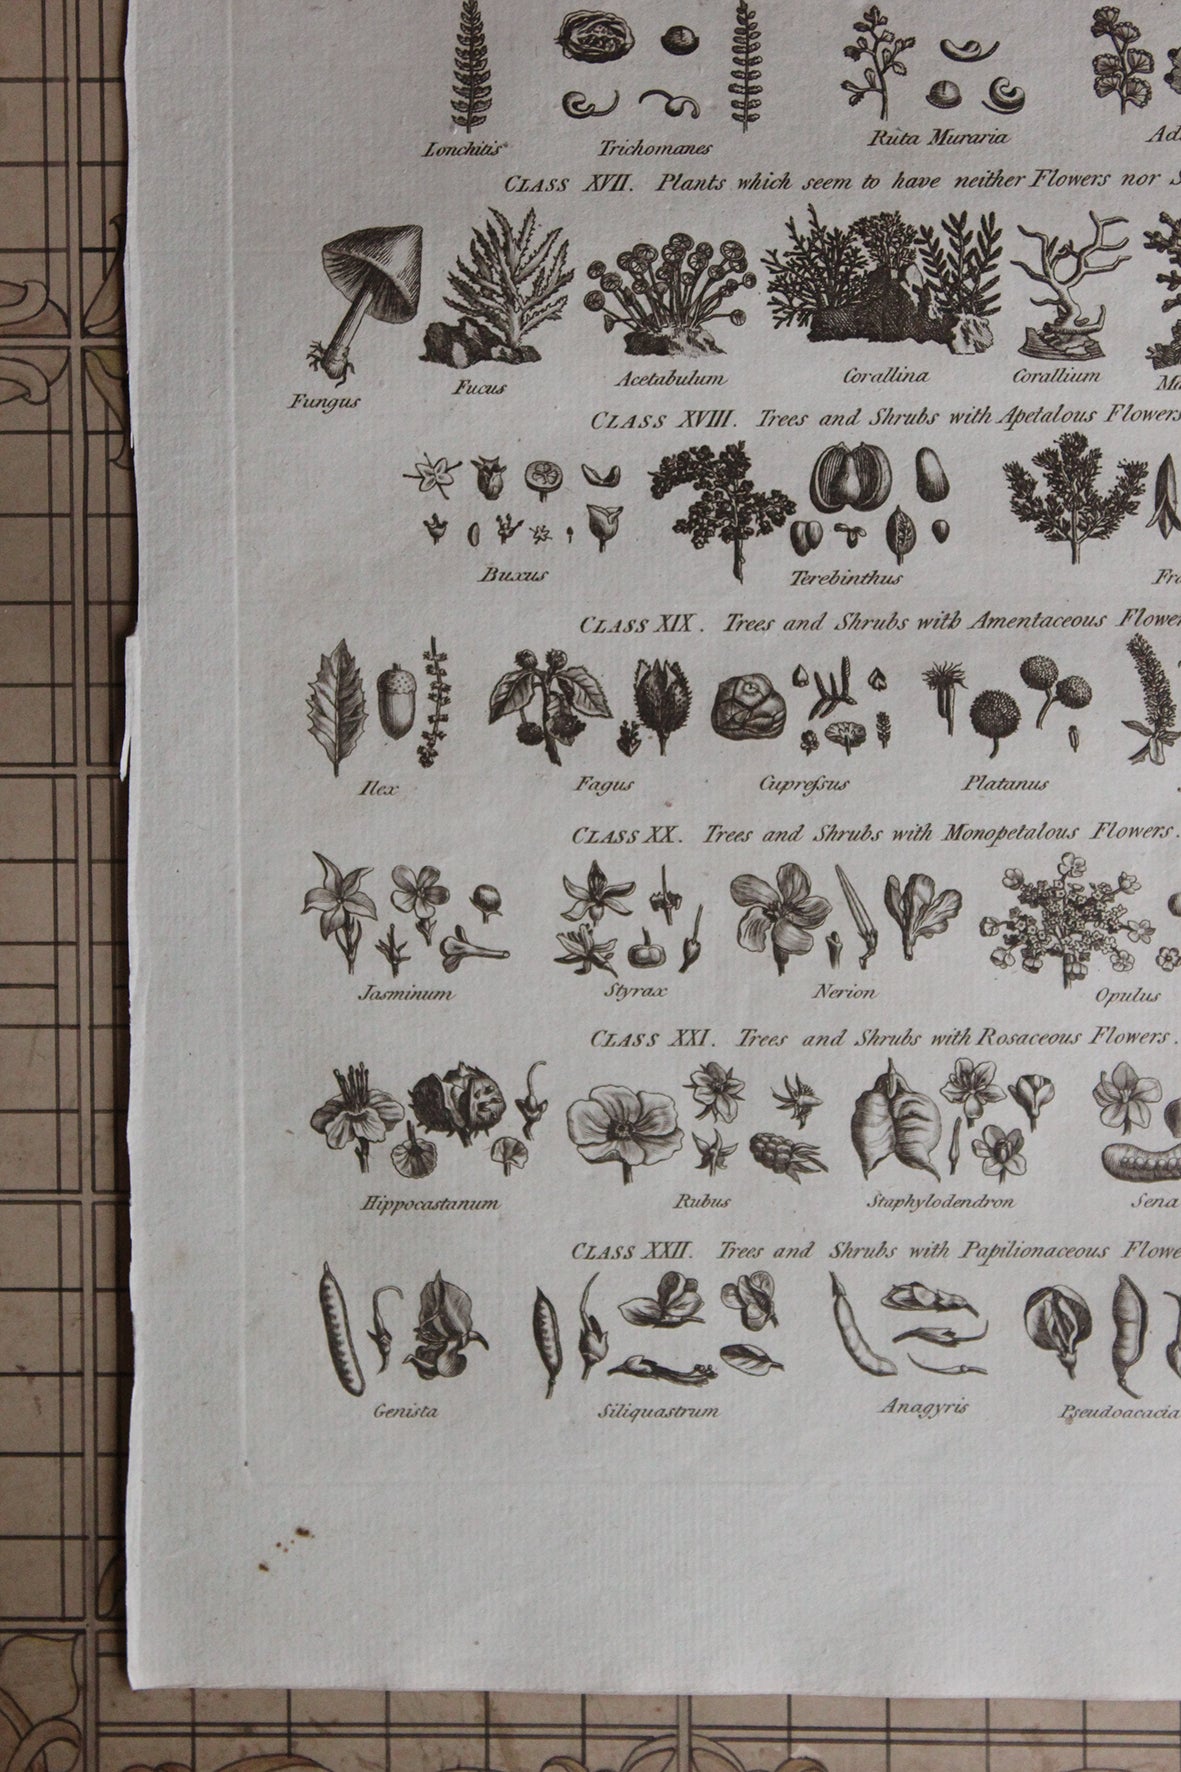 Lonchitis Trichomanes Ruta Muraria Ad
CLASS XVII. Plants which seem to have neither Flowers nor S
Fungus Fucus Acetabulum Corallina Corallium Ma
CLASS XVIII. Trees and Shrubs with Apetalous Flowers
Buxus Terebinthus Fra
CLASS XIX. Trees and Shrubs with Amentaceous Flowe
Ilex Fagus Cupreſsus Platanus
CLASS XX. Trees and Shrubs with Monopetalous Flowers.
Jasminum Styrax Nerion Opulus
CLASS XXI. Trees and Shrubs with Rosaceous Flowers.
Hippocastanum Rubus Staphylodendron Sena
CLASS XXII. Trees and Shrubs with Papilionaceous Flowe
Genista Siliquastrum Anagyris Pseudoacacia